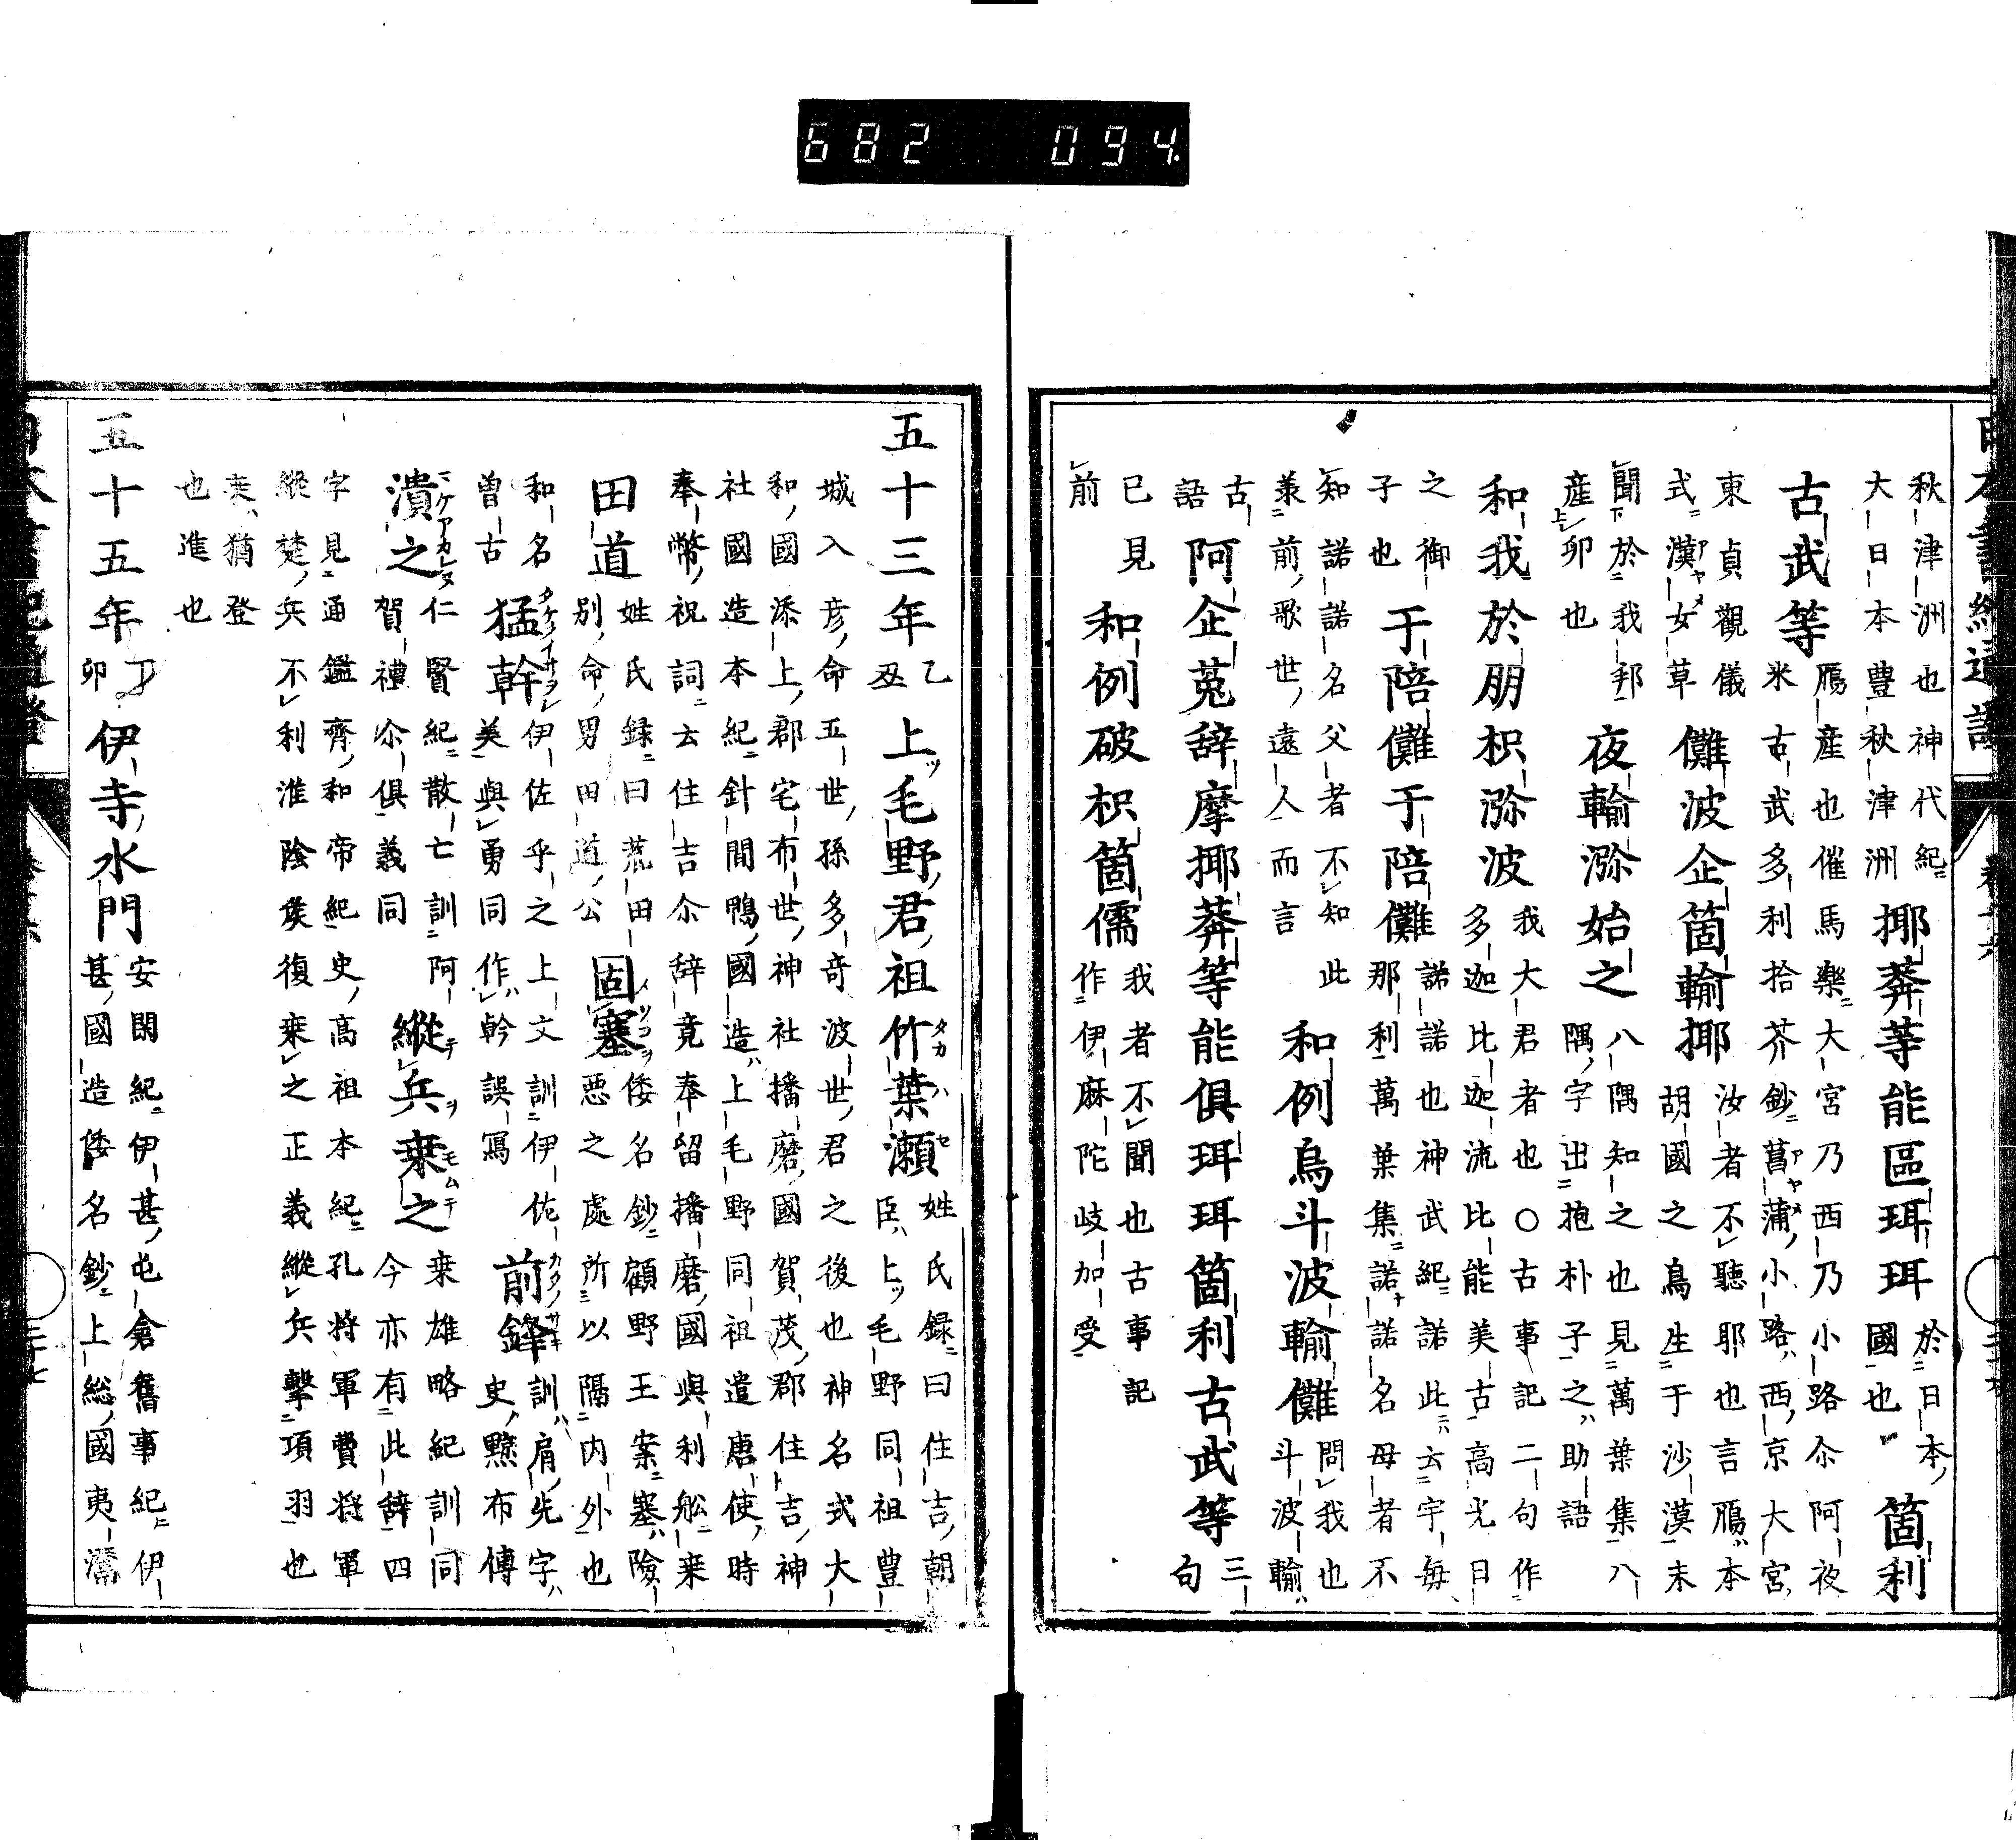 秋津洲也神代紀
大日本豊秋津洲
揶莾等能區珥珥
於日本
國也
箇利
古武等
鴈産也催馬樂大宮乃西乃小路尒阿夜
米古武多利拾芥鈔菖蒲小路西京大宮
東貞觀儀
式漢女草
儺波企箇輸揶
汝者不聽耶也言鴈本
胡國之鳥生于沙漠末
聞於我邦
産卵也
夜輸瀰始之
八隅知之也見萬葉集八
隅字出抱朴子之助語
和我於朋枳瀰波
我大君者也〇古事記二句作
多迦比迦流比能美古高光日
之御
子也
于陪儺于陪儺
諾諾也神武紀諾此云宇毎
那利萬葉集諾諾名母者不
知諾諾名父者不知此
兼前歌世遠人而言
和例烏斗波輸儺
問我也
斗波輸
古
語
阿企菟辞摩揶莾等能俱珥珥箇利古武等
三
句
已見
前
和例破枳箇儒
我者不聞也古事記
作伊麻陀岐加受
五十三年
乙
丑
上毛野君祖竹葉瀬
姓氏録曰住吉朝
臣上毛野同祖豊
城入彦命五世孫多奇波世君之後也神名式大
和國添上郡宅布世神社播磨國賀茂郡住吉神
社國造本紀針間鴨國造上毛野同祖遣唐使時
奉幣祝詞云住吉尒辞竟奉留播磨國與利舩来
田道
姓氏録曰荒田
別命男田道公
固塞
倭名鈔顧野王案塞險
悪之處所以隔内外也
和名
曽古
猛幹
伊佐乎之
美與勇同
上文訓伊佐
作幹誤寫
前鋒
訓肩先字
史黥布傳
潰之
仁賢紀散亡訓阿
賀禮尒俱義同
縱兵乗之
乗雄略紀訓同
今亦有此辞四
字見通鑑齊和帝紀史高祖本紀孔将軍費将軍
縱楚兵不利淮陰矦復乗之正義縱兵撃項羽也
乗猶登
也進也
五十五年
丁
卯
伊寺水門
安閑紀伊甚屯倉舊事紀伊
甚國造倭名鈔上総國夷灊
682 094